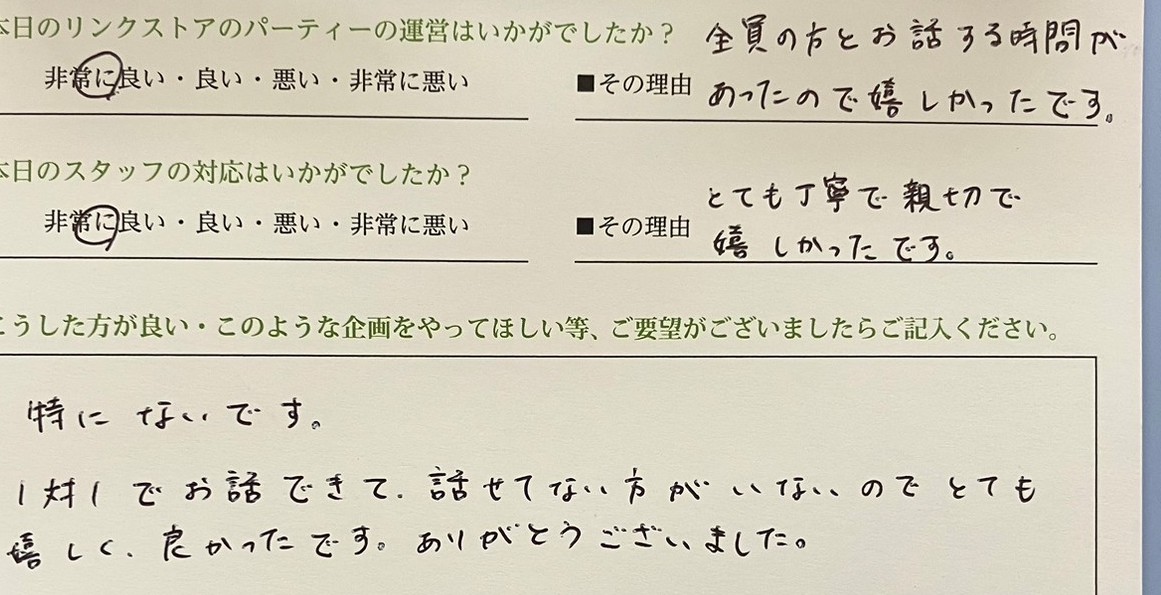 本日のリンクストアのパーティーの運営はいかがでしたか？
非常に良い・良い・悪い・非常に悪い
■その理由
全員の方とお話する時間が
あったので嬉しかったです。
本日のスタッフの対応はいかがでしたか？
非常に良い・良い・悪い・非常に悪い
■その理由
とても丁寧で親切で
嬉しかったです。
こうした方が良い・このような企画をやってほしい等、ご要望がございましたらご記入ください。
特にないです。
1対1でお話できて、話せてない方がいないのでとても
嬉しく、良かったです。ありがとうございました。